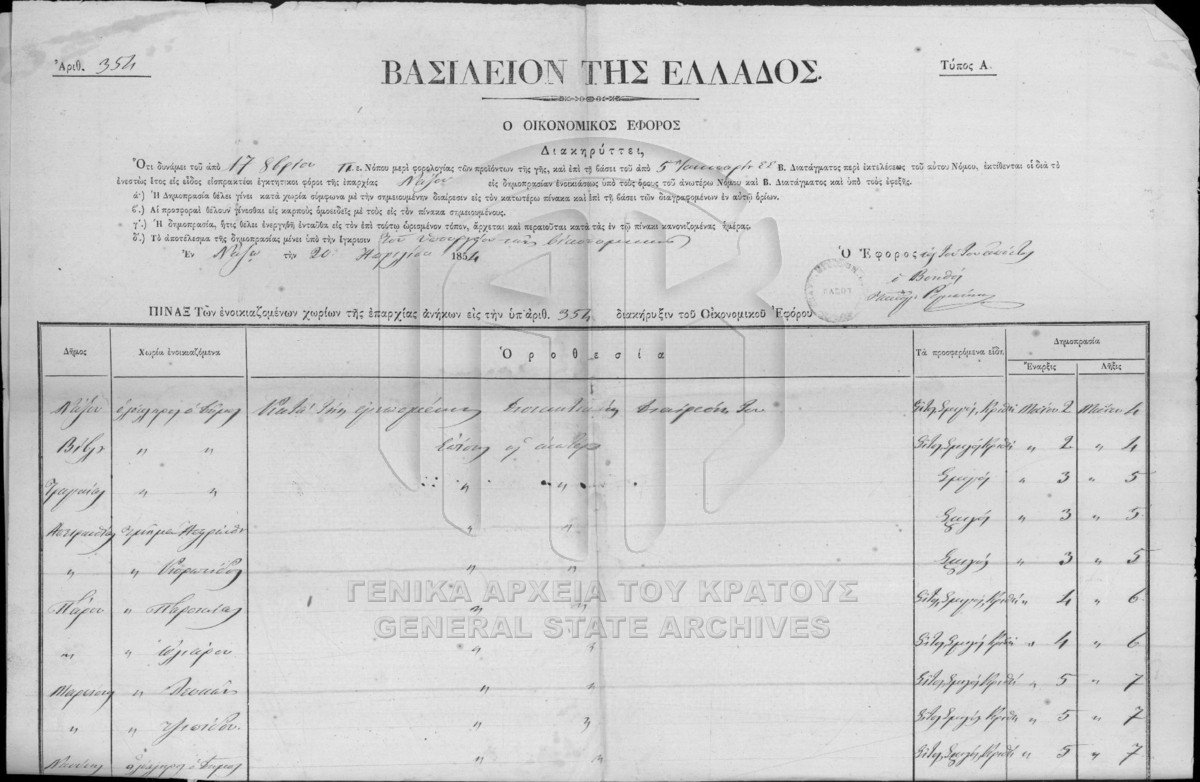 Ἀριθ. 354
Τύπος Α.
ΒΑΣΙΛΕΙΟΝ ΤΗΣ ΕΛΛΑΔΟΣ.
Ο ΟΙΚΟΝΟΜΙΚΟΣ ΕΦΟΡΟΣ
Διακηρύττει,
Ὅτι δυνάμει τοῦ ἀπὸ 17 8βρίου π. ε. Νόμου περὶ φορολογίας τῶν προϊόντων τῆς γῆς, καὶ ἐπὶ τῇ βάσει τοῦ ἀπὸ 5 Β. Διατάγματος περὶ ἐκτελέσεως τοῦ αὐτοῦ Νόμου, ἐκτίθενται οἱ διὰ τὸ
ἐνεστὼς ἔτος εἰς εἶδος εἰσπρακτέοι ἐγκτητικοὶ φόροι τῆς ἐπαρχίας Νάξου εἰς δημοπρασίαν ἐνοικιάσεως ὑπὸ τοὺς ὅρους τοῦ ἀνωτέρω Νόμου καὶ Β. Διατάγματος καὶ ὑπὸ τοὺς ἑφεξῆς.
ά·) Ἡ Δημοπρασία θέλει γίνει κατὰ χωρία σύμφωνα μὲ τὴν σημειουμένην διαίρεσιν εἰς τὸν κατωτέρω πίνακα καὶ ἐπὶ τῇ βάσει τῶν διαγραφομένων ἐν αὐτῷ ὁρίων.
β'.) Αἱ προσφοραὶ θέλουν γίνεσθαι εἰς καρποὺς ὁμοειδεῖς μὲ τοὺς εἰς τὸν πίνακα σημειουμένους.
γ'.) Ἡ δημοπρασία, ἥτις θέλει ἐνεργηθῆ ἐνταῦθα εἰς τὸν ἐπὶ τούτῳ ὡρισμένον τόπον, ἄρχεται καὶ περαιοῦται κατὰ τὰς ἐν τῷ πίνακι κανονιζομένας ἡμέρας.
δ'.) Τὸ ἀποτέλεσμα τῆς δημοπρασίας μένει ὑπὸ τὴν ἔγκρισιν τοῦ ὑπουργείου τῶν οἰκονομικῶν
Ἐν Νάξῳ τὴν 20 Ἀπριλίου 1854
Ὁ Ἔφορος
ὁ Βοηθὸς
ΠΙΝΑΞ Τῶν ἐνοικιαζομένων χωρίων τῆς ἐπαρχίας ἀνήκων εἰς τὴν ὑπ' ἀριθ. 354 διακήρυξιν τοῦ Οἰκονομικοῦ Ἐφόρου
Δῆμος Χωρία ἐνοικιαζόμενα Ὁροθεσία Τὰ προσφερόμενα εἴδη Δημοπρασία
Ἔναρξις Λῆξις
Νάξου ὁλόκληρος ὁ δῆμος Κατὰ τὴν διοικητικὴν διαίρεσίν του Σῖτος, Σμιγός, Κριθή Μαΐου 2 Μαΐου 4
Βίβλου " " Σῖτος, Σμιγός, Κριθή " 2 " 4
Τραγαίας " " " " Σμιγός " 3 " 5
" " Σμιγός " 3 " 5
" " " " Σμιγός " 3 " 5
Πάρου " Παροικίας " " Σῖτος, Σμιγός, Κριθή " 4 " 6
" " " " Σῖτος, Σμιγός, Κριθή " 4 " 6
Μαρπίσσης " Λευκῶν " " Σῖτος, Σμιγός, Κριθή " 5 " 7
" " Τζιπίδου " " Σῖτος, Σμιγός, Κριθή " 5 " 7
Ναούσης ὁλόκληρος ὁ δῆμος " " Σῖτος, Σμιγός, Κριθή " 5 " 7
ΓΕΝΙΚΑ ΑΡΧΕΙΑ ΤΟΥ ΚΡΑΤΟΥΣ
GENERAL STATE ARCHIVES